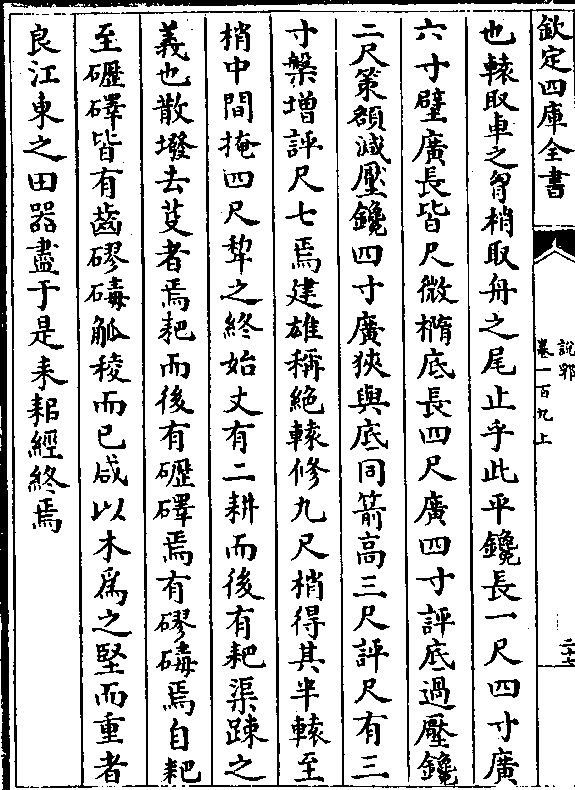 欽定四庫全書
說郛
卷一百九上
二十七
也轅取車之胷梢取舟之尾止乎此平鑱長一尺四寸廣
六寸壁廣長皆尺微橢底長四尺廣四寸評底過壓鑱
二尺策額減壓鑱四寸廣狹與底同箭高三尺評尺有三
寸槃增評尺七焉建雄稱絶轅修九尺梢得其半轅至
梢中間掩四尺犂之終始丈有二耕而後有耙渠踈之
義也散墢去芟者焉耙而後有礰礋焉有磟碡焉自耙
至礰礋皆有齒磟碡觚稜而已咸以木爲之堅而重者
良江東之田器盡于是耒耜經終焉